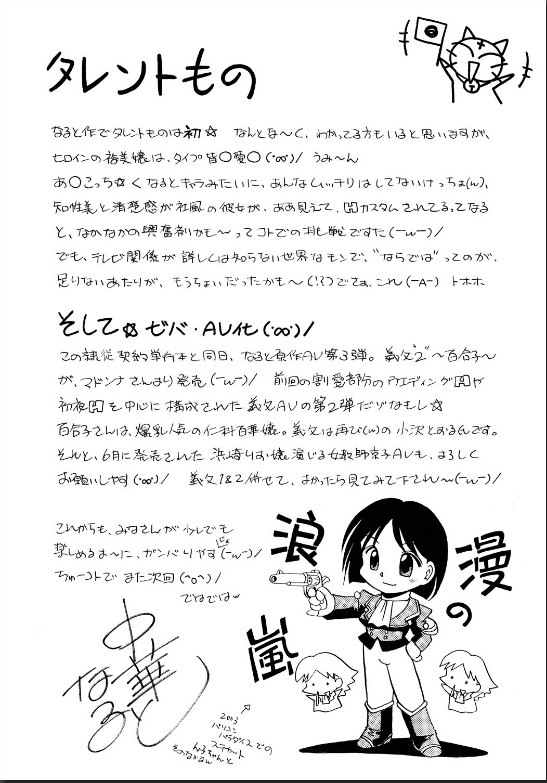 タレントもの
なると作でタレントものは初☆ なんとな〜く、わかってる方もいると思いますが、
ヒロインの裕美嬢は、タイプ皆〇愛〇(・∞・)/ うみ〜ん
あ〇こっち☆くなるとキャラみたいに、あんなしいッチリはしてないけっちょ(w)、
知性美と清楚感が社風の彼女が、ああ見えて、カスタムされてるってなる
と、なかなかの興奮剤かも〜ってコトでの挑戦ですた(ーwー)/
でも、テレビ関係が詳しくは知らない世界なモンで、“ならでは”ってのが、
足りないあたりが、もうちょいだったかも〜(!?)でてぁ、これ(ーAー) トホホ
そして☆ ゼバ・AV化(・∞・)/
この隷従契約単行本と同日、なると原作AV第3弾。義父“2”〜百合子〜
が、マドンナさんより発売(ーwー)/ 前回の割愛者防のウエディングや
初夜を中心に構成された義父AVの第2弾だゾなもし☆
百合子さんは、爆乳人気の仁科百華嬢。義父は再び(w)の小沢とおるんです。
それと、6月に発売された浜崎りお嬢演じる女教師京子AVも、よろしく
お願いしやす(・∞・)/ 義父1&2併せて、よかったら見てみて下され〜(ーwー)/
これからも、みなさんが少しでも
楽しめるよーに、ガンバりやす(ーwー)/
ちゅーコトで また次回(^o^)/
でわでわw
浪漫の嵐
中華なると
2003
パソコン
パラダイスでの